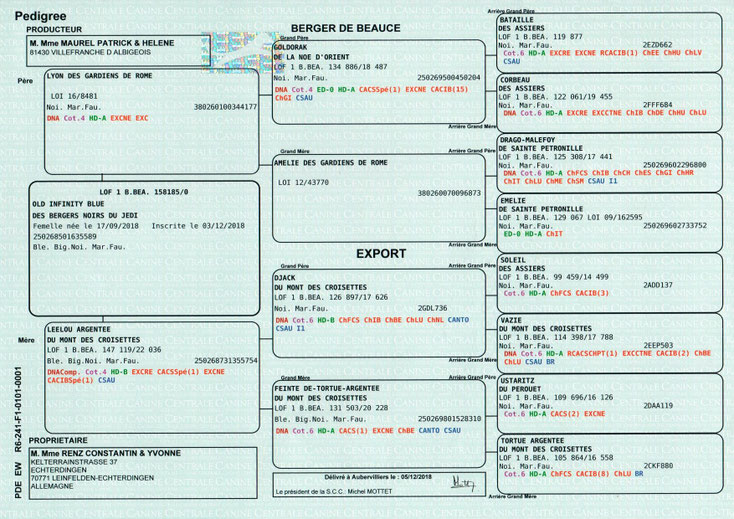 Pedigree
PRODUCTEUR
M. Mme MAUREL PATRICK & HELENE
81430 VILLEFRANCHE D ALBIGEOIS
BERGER DE BEAUCE
Père
LYON DES GARDIENS DE ROME
LOI 16/8481
Noi. Mar.Fau. 380260100344177
DNA Cot.4 HD-A EXCNE EXC
LOF 1 B.BEA. 158185/0
OLD INFINITY BLUE
DES BERGERS NOIRS DU JEDI
Femelle née le 17/09/2018 Inscrite le 03/12/2018
250268501635589
Ble. Big.Noi. Mar.Fau.
Mère
LEELOU ARGENTEE
DU MONT DES CROISETTES
LOF 1 B.BEA. 147 119/22 036
Ble. Big.Noi. Mar.Fau. 250268731355754
DNAComp. Cot.4 HD-B EXCRE CACSSpé(1) EXCNE
CACIBSpé(1) CSAU
PROPRIETAIRE
M. Mme RENZ CONSTANTIN & YVONNE
KELTERRAINSTRASSE 37
ECHTERDINGEN
70771 LEINFELDEN-ECHTERDINGEN
ALLEMAGNE
PDE EW R6-241-F1-0101-0001
Grand Père
GOLDORAK
DE LA NOE D'ORIENT
LOF 1 B.BEA. 134 886/18 487
Noi. Mar.Fau. 250269500450204
DNA Cot.4 ED-0 HD-A CACSSpé(1) EXCRE CACIB(15)
ChGI CSAU
Grand Mère
AMELIE DES GARDIENS DE ROME
LOI 12/43770
380260070096873
EXPORT
Grand Père
DJACK
DU MONT DES CROISETTES
LOF 1 B.BEA. 126 897/17 626
Noi. Mar.Fau. 2GDL736
DNA Cot.6 HD-B ChFCS ChIB ChBE ChLU ChNL CANTO
CSAU I1
Grand Mère
FEINTE DE-TORTUE-ARGENTEE
DU MONT DES CROISETTES
LOF 1 B.BEA. 131 503/20 228
Noi. Mar.Fau. 250269801528310
DNA Cot.6 HD-A CACS(1) EXCNE ChBE CANTO CSAU
Délivré à Aubervilliers le : 05/12/2018
Le président de la S.C.C.: Michel MOTTET
Arrière Grand Père
BATAILLE
DES ASSIERS
LOF 1 B.BEA. 119 877
Noi. Mar.Fau. 2EZD662
Cot.4 HD-A EXCRE EXCNE RCACIB(1) ChEE ChHU ChLV
CSAU
Arrière Grand Mère
CORBEAU
DES ASSIERS
LOF 1 B.BEA. 122 061/19 455
Noi. Mar.Fau. 2FFF684
DNA Cot.6 HD-A EXCRE EXCCTNE ChIB ChDE ChHU ChLU
Arrière Grand Père
DRAGO-MALEFOY
DE SAINTE PETRONILLE
LOF 1 B.BEA. 125 308/17 441
Noi. Mar.Fau. 250269602296800
DNA Cot.6 HD-A ChFCS ChIB ChCH ChES ChGI ChHR
ChIT ChLU ChME ChSM CSAU I1
Arrière Grand Mère
EMELIE
DE SAINTE PETRONILLE
LOF 1 B.BEA. 129 067 LOI 09/162595
Noi. Mar.Fau. 250269602733752
ED-0 HD-A ChIT
Arrière Grand Père
SOLEIL
DES ASSIERS
LOF 1 B.BEA. 99 459/14 499
Noi. Mar.Fau. 2ADD137
Cot.6 HD-A ChFCS CACIB(3)
Arrière Grand Mère
VAZIE
DU MONT DES CROISETTES
LOF 1 B.BEA. 114 398/17 788
Noi. Mar.Fau. 2EEP503
DNA Cot.6 HD-A RCACSCHPT(1) EXCCTNE CACIB(2) ChBE
ChLU CSAU BR
Arrière Grand Père
USTARITZ
DU PEROUET
LOF 1 B.BEA. 109 696/16 126
Noi. Mar.Fau. 2DAA119
Cot.6 HD-A CACS(2) EXCNE
TORTUE ARGENTEE
DU MONT DES CROISETTES
LOF 1 B.BEA. 105 864/16 558
Noi. Mar.Fau. 2CKF880
Cot.6 HD-A ChFCS CACIB(8) ChLU BR
Arrière Grand Mère